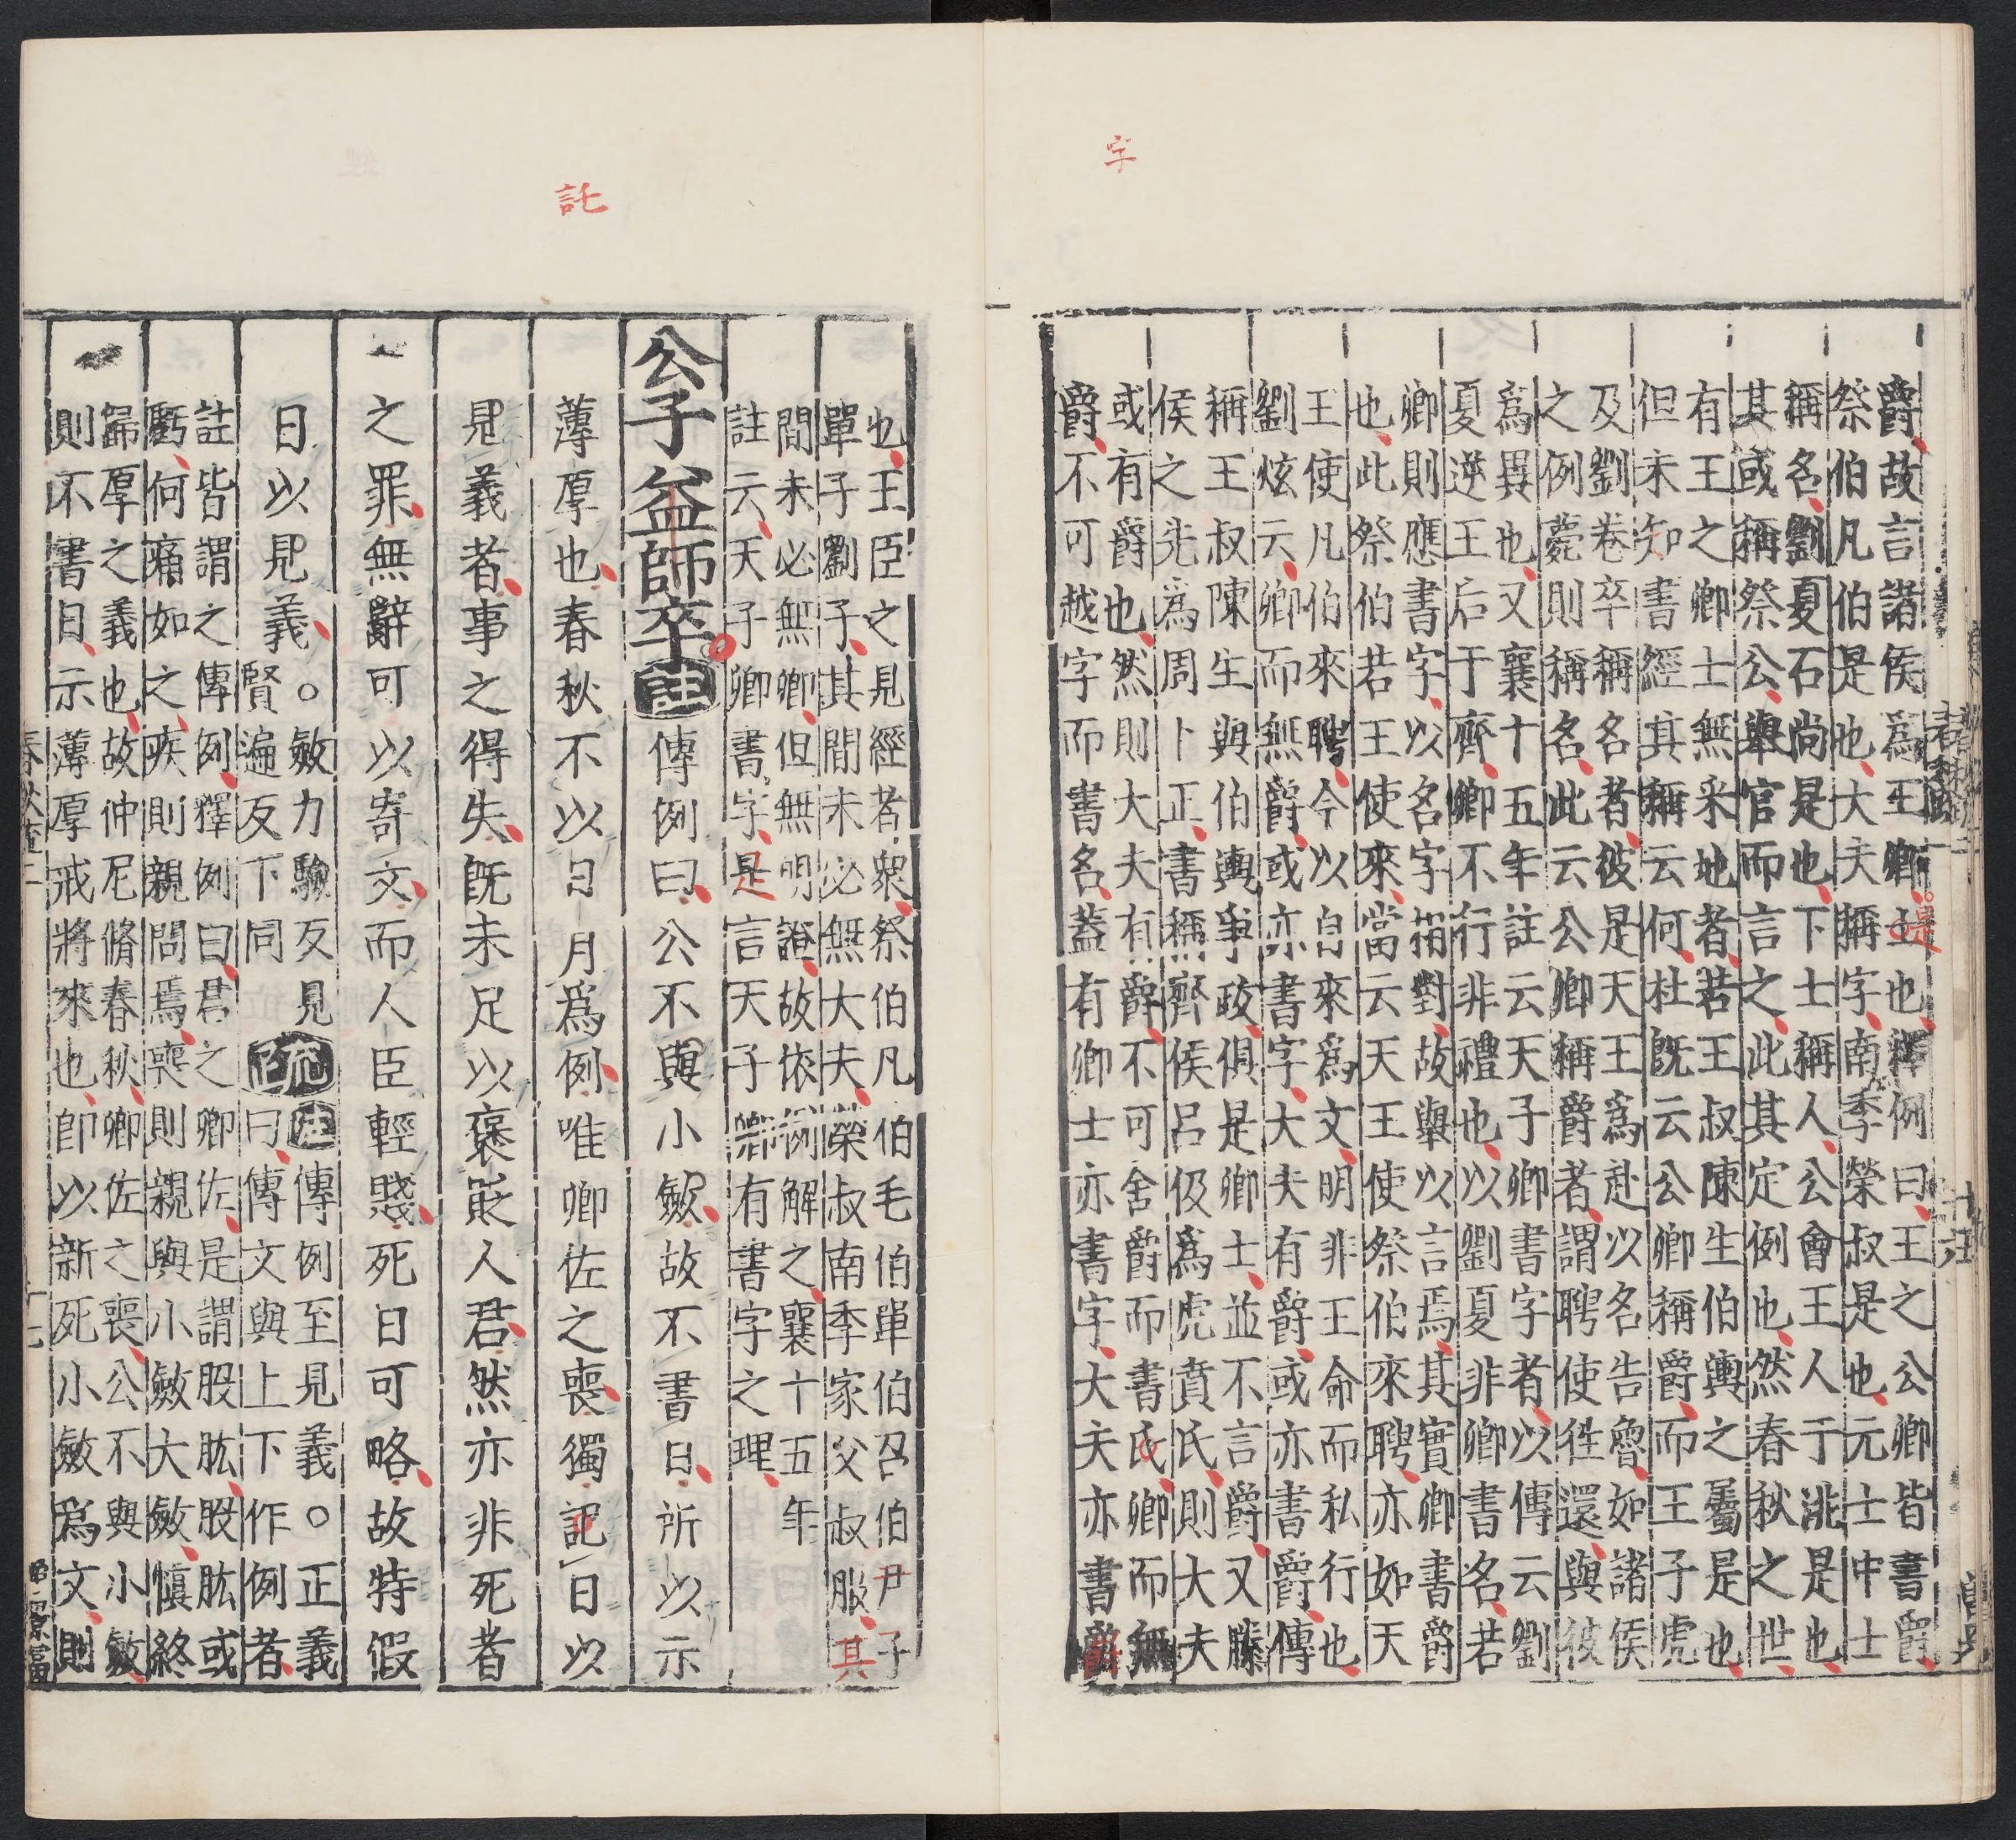 字
爵故言諸侯爲王卿士也釋例曰王之公卿皆書爵
祭伯凡伯是也大夫稱字南季榮叔是也元士中士
稱名劉夏石尚是也下士稱人公會王人于洮是也
其或稱祭公舉官而言之此其定例也然春秋之世
有王之卿士無采地者若王叔陳生伯輿之屬是也
但未知書經其稱云何杜既云公卿稱爵而王子虎
及劉卷卒稱名者彼是天王爲赴以名告魯如諸侯
之例薨則稱名此云公卿稱爵者謂聘使徃還與彼
爲異也又襄十五年註云天子卿書字者以傳云劉
夏逆王后于齊卿不行非禮也以劉夏非卿書名若
卿則應書字以名字相對故舉以言焉其實卿書爵
也此祭伯若王使來當云天王使祭伯來聘亦如天
王使凡伯來聘今以自來爲文明非王命而私行也
劉炫云卿而無爵或亦書字大夫有爵或亦書爵傳
稱王叔陳生與伯輿爭政俱是卿士並不言爵又滕
侯之先爲周卜正書稱齊侯呂伋爲虎賁氏則大夫
或有爵也然則大夫有爵不可舍爵而書氏卿而無
爵不可越字而書名蓋有卿士亦書字大夫亦書爵
是
託
也王臣之見經者衆祭伯凡伯毛伯單伯召伯尹子
單子劉子其間未必無大夫榮叔南季家父叔服其
間未必無卿但無明證故依例解之襄十五年
註云天子卿書字是言天子卿有書字之理
公子益師卒註傳例曰公不與小斂故不書日所以示
薄厚也春秋不以日月爲例唯卿佐之喪獨記日以
見義者事之得失既未足以褒貶人君然亦非死者
之罪無辭可以寄文而人臣輕賤死日可略故特假
日以見義○斂力驗反見
賢遍反下同疏註傳例至見義○正義
曰傳文與上下作例者
註皆謂之傳例釋例曰君之卿佐是謂股肱股肱或
虧何痛如之疾則親問焉喪則親與小斂大斂愼終
歸厚之義也故仲尼脩春秋卿佐之喪公不與小斂
則不書日示薄厚戒將來也卽以新死小斂爲文則